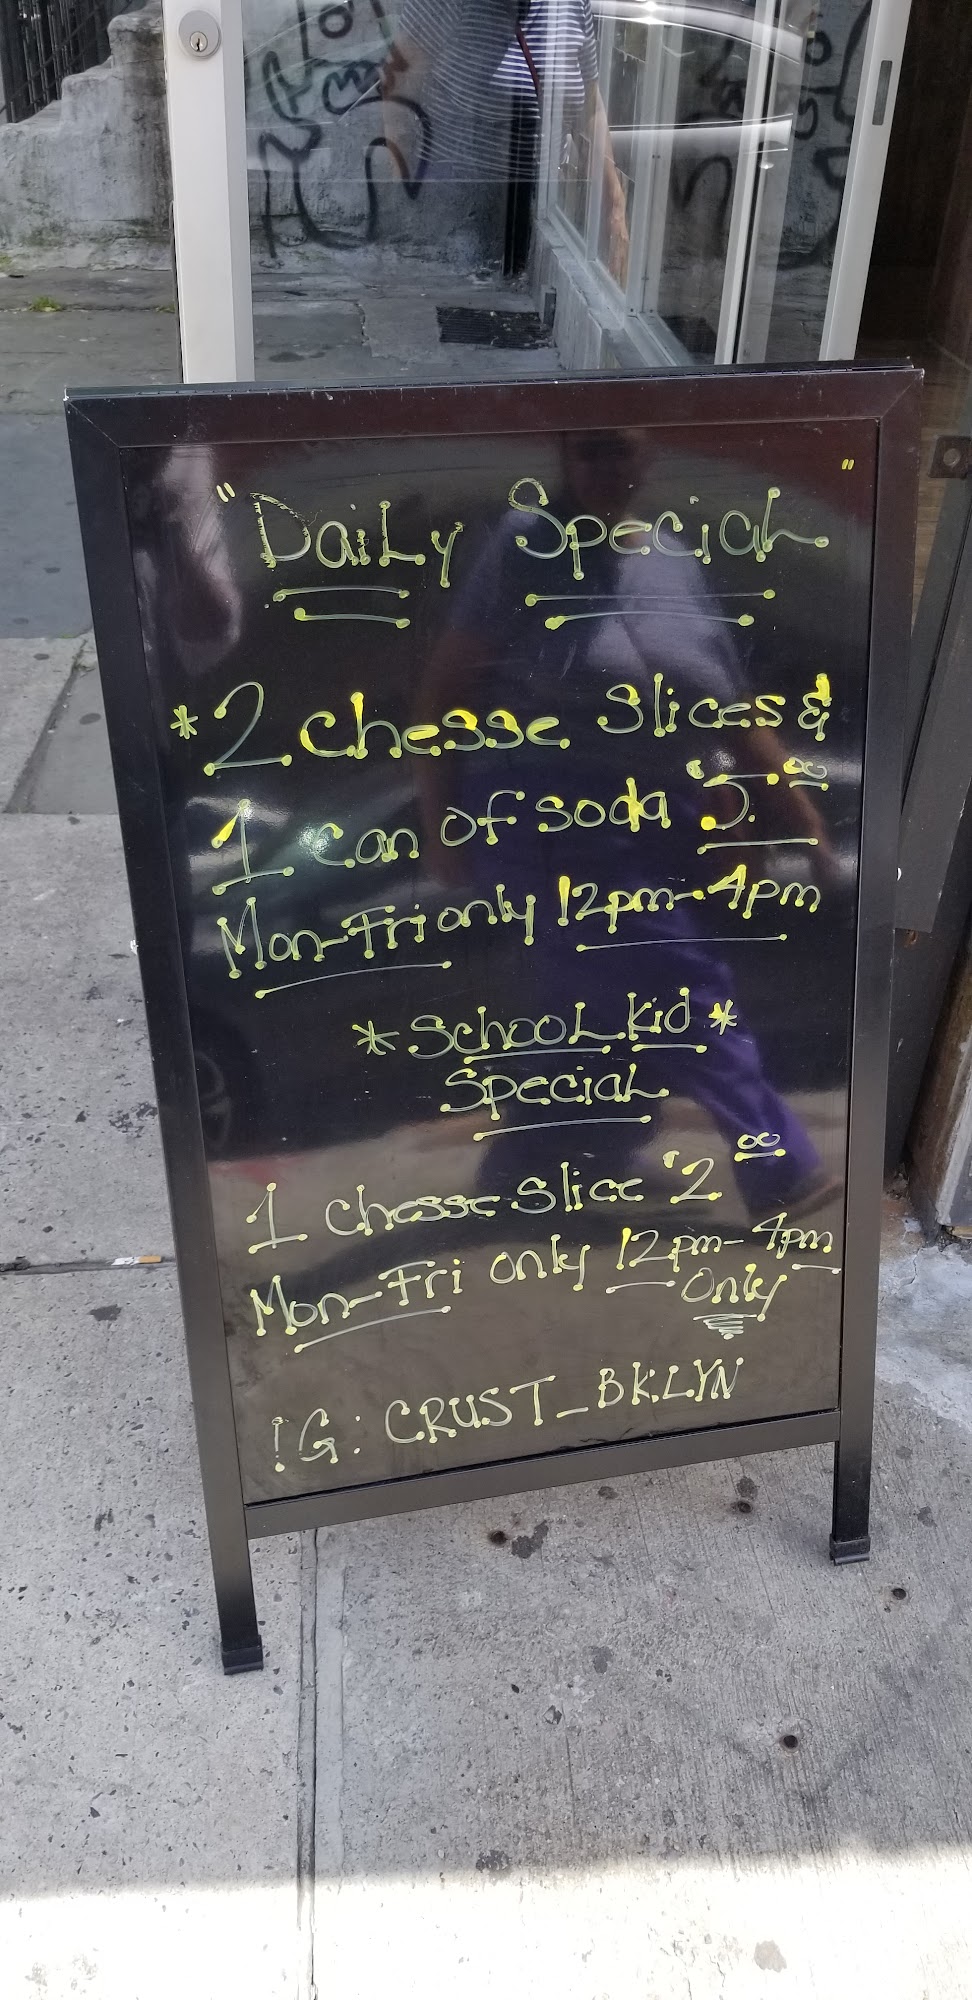 "Daily Special"
*2 Chesse Slices &
1 Can of soda 5.00
Mon-Fri only 12pm-4pm
*School Kid*
Special
1 Chesse Slice 2.00
Mon-Fri only 12pm-4pm
Only
IG: CRUST_BKLYN